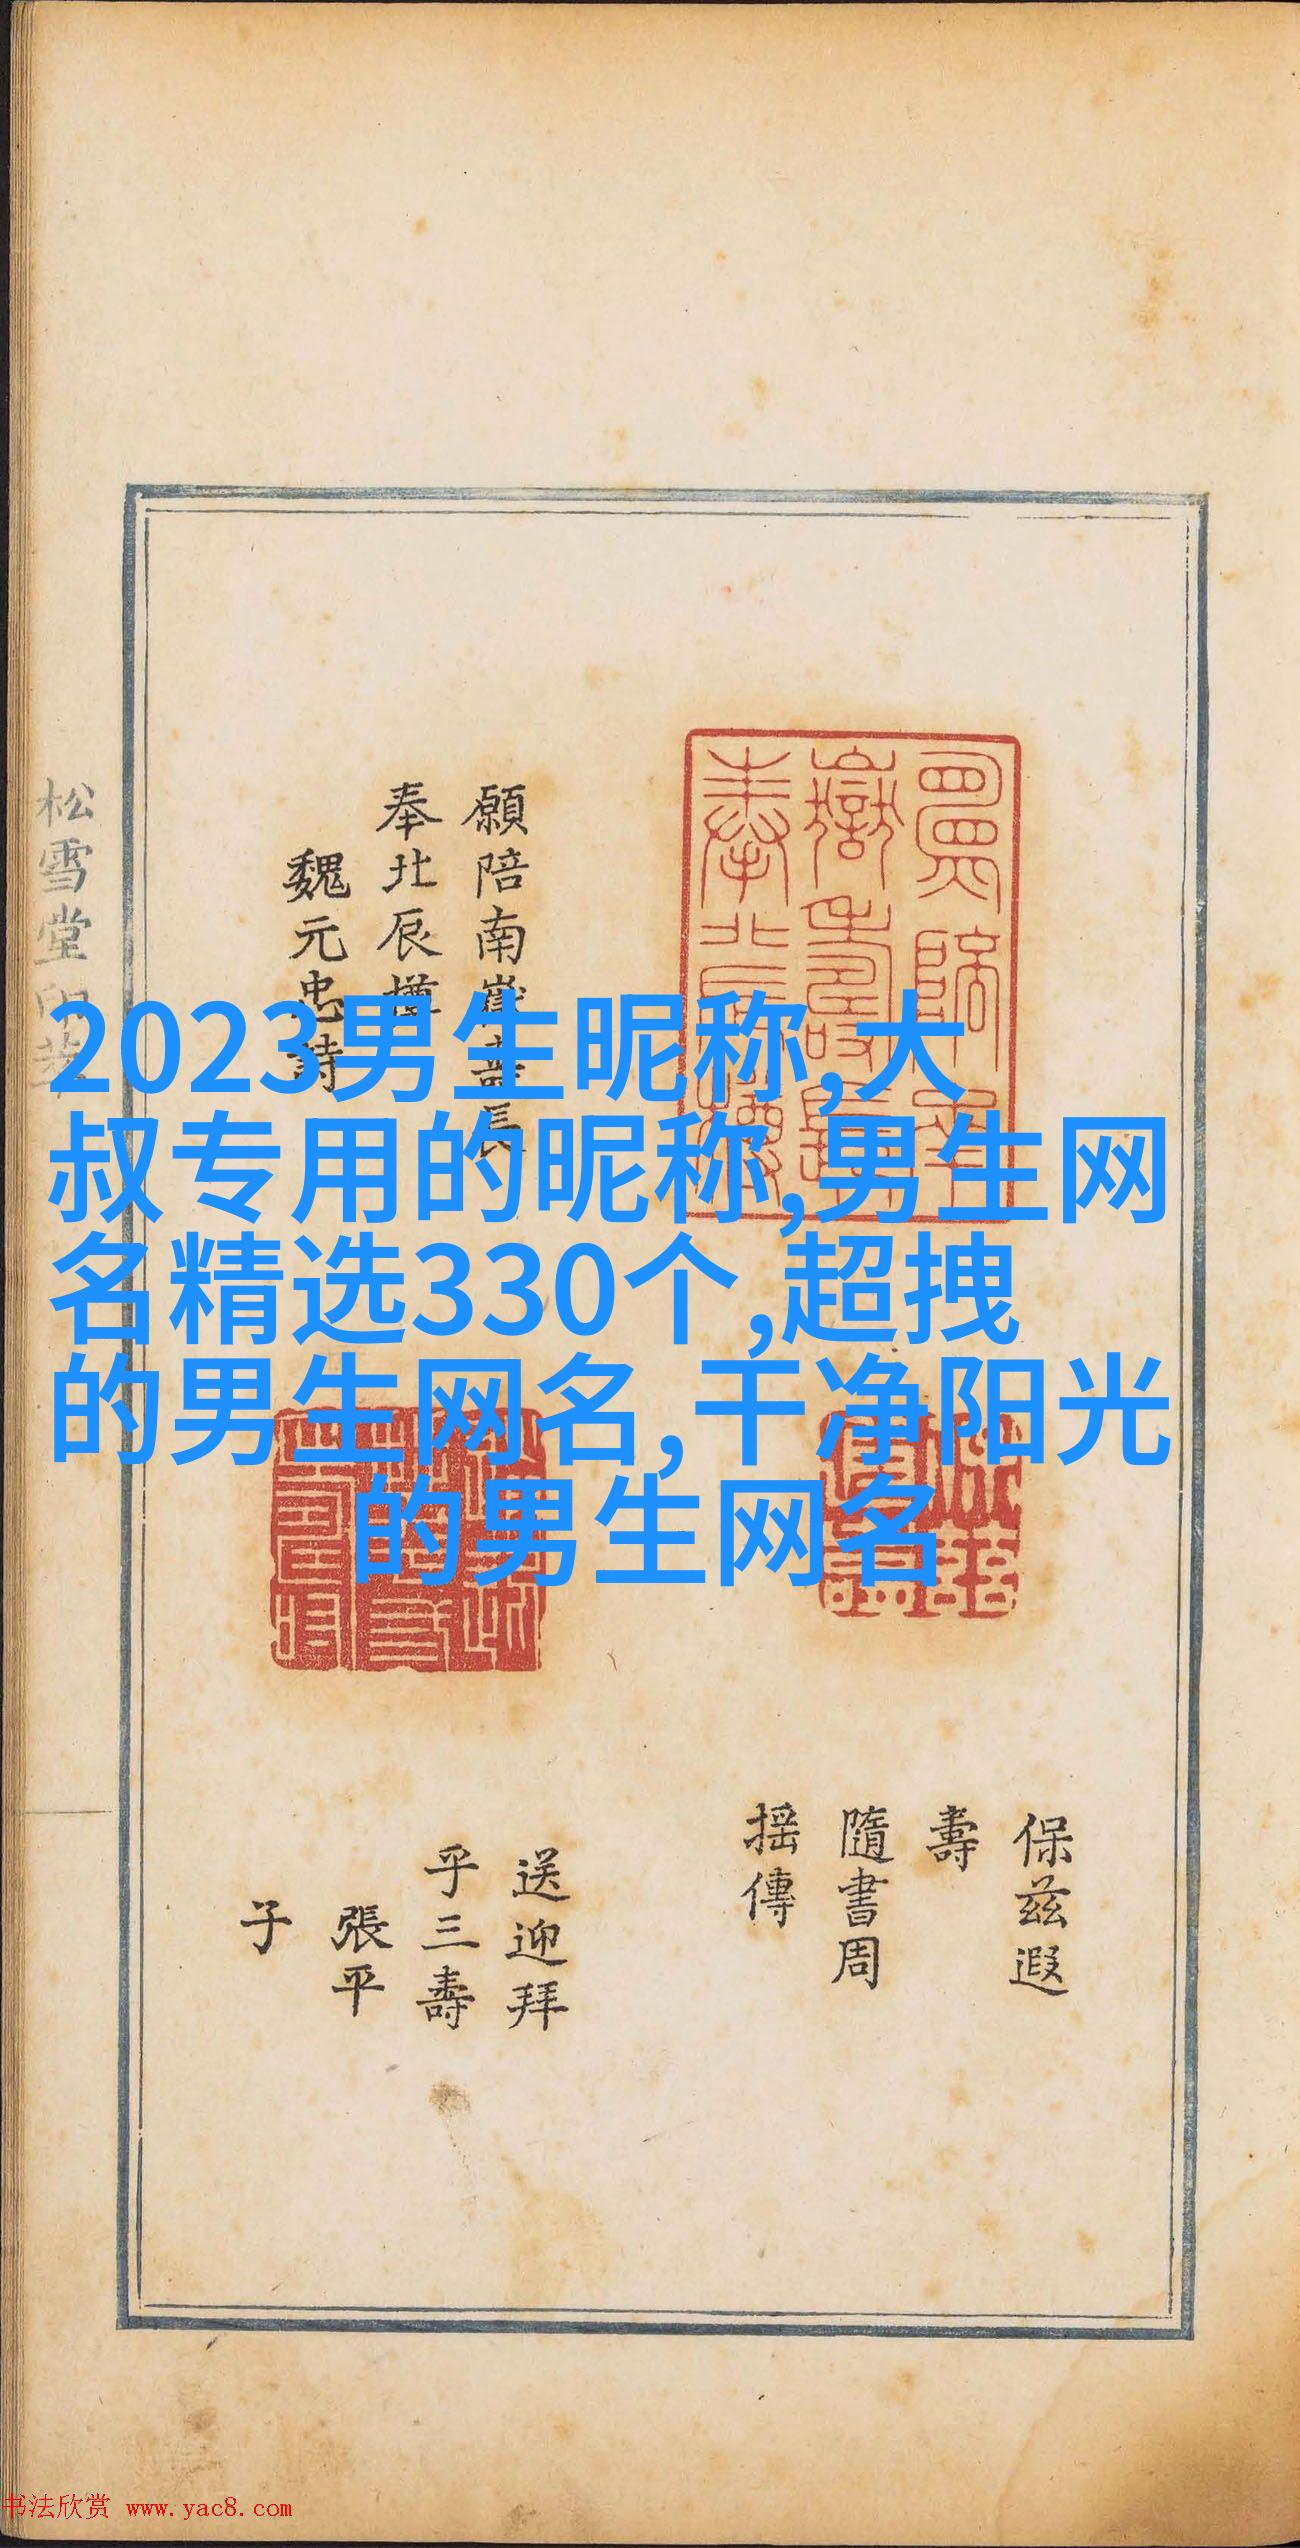 2023男生昵称,大
叔专用的昵称,男生网
名精选330个,超拽
的男生网名,干净阳光
的男生网名
願陪南嶽壽長
奉北辰樽
魏元忠詩
保茲遐
壽
隨書周
搖傳
送迎拜
乎三壽
張平
子
松雪堂印萃
书法欣赏 www.yac8.com